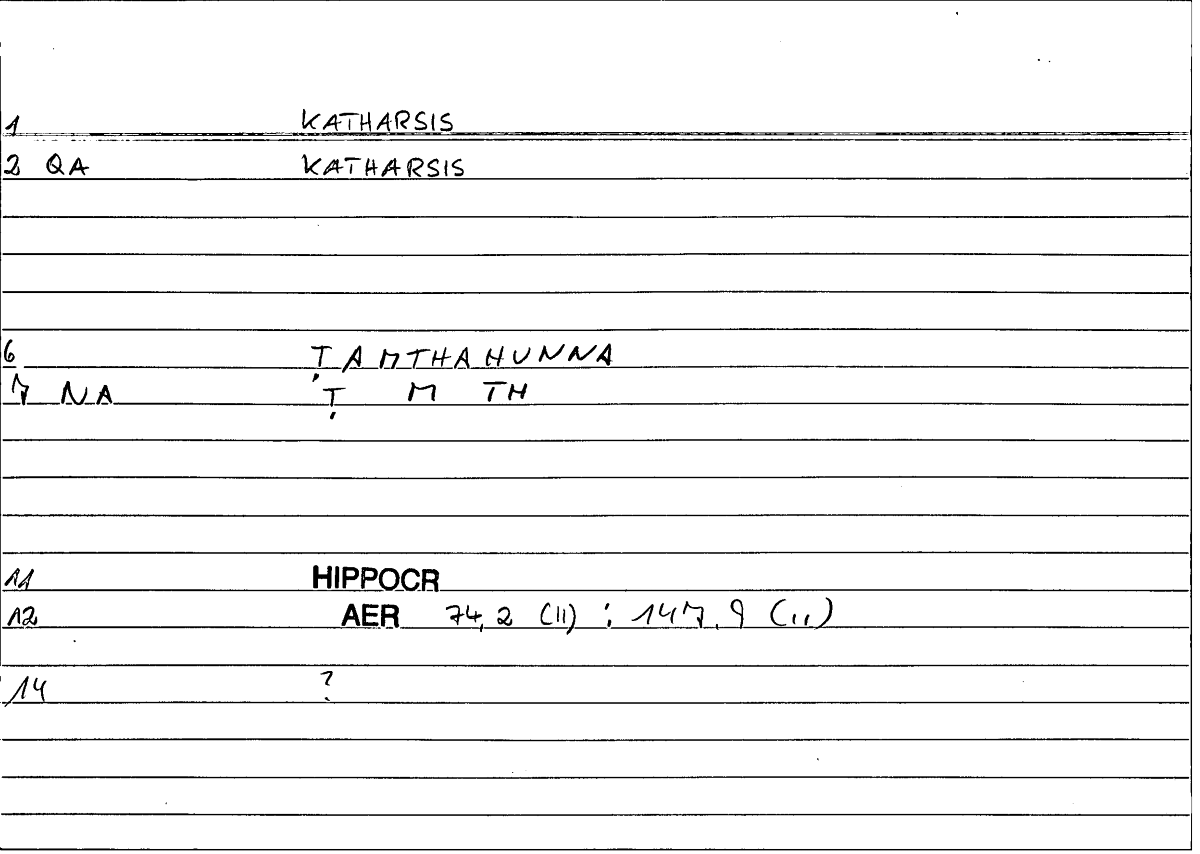 1 KATHARSIS
2 QA KATHARSIS
6 ṬAMTHAHUNNA
7 NA Ṭ M TH
11 HIPPOCR
12 AER 74,2 (11) : 147,9 (11)
14 ?